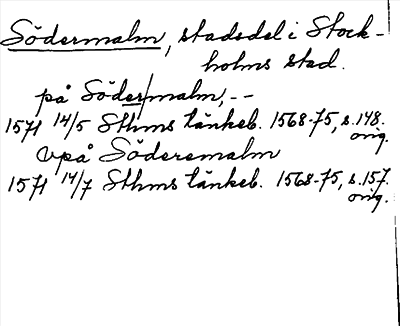 Södermalm, stadsdel i Stock-
holms stad.
på Södermalm, --
1571 14/5 Sthms tänkeb. 1568-75, s. 148.
orig.
Vpå Söderemalm
1571 14/7 Sthms tänkeb. 1568-75, s. 157.
orig.